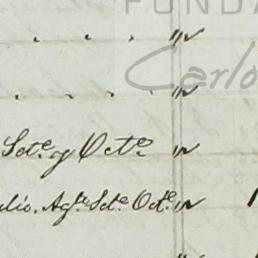 FUNDA
Carlo
. . . "
. . . . "
Set.e y Oct.e "
ulio. Ag.to Set.e Oct.e "